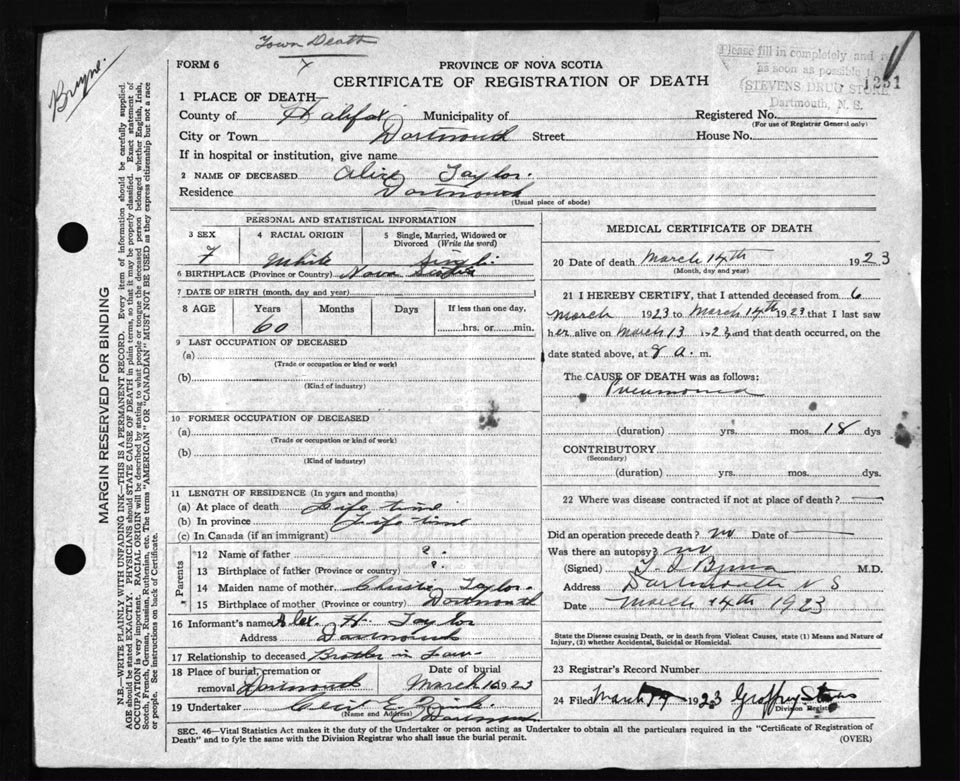 Town Death
Bruyne.
FORM 6
PROVINCE OF NOVA SCOTIA
CERTIFICATE OF REGISTRATION OF DEATH
Please fill in completely and
as soon as possible
STEVENS DRUG STORE
Dartmouth, N. S.
1251
1 PLACE OF DEATH—
County of Halifax Municipality of Registered No.
(For use of Registrar General only)
City or Town Dartmouth Street House No.
If in hospital or institution, give name
2 NAME OF DECEASED Alice Taylor.
Residence Dartmouth
(Usual place of abode)
PERSONAL AND STATISTICAL INFORMATION
3 SEX 4 RACIAL ORIGIN 5 Single, Married, Widowed or
Divorced (Write the word)
F White Single
6 BIRTHPLACE (Province or Country) Nova Scotia
7 DATE OF BIRTH (month, day and year)
8 AGE Years Months Days If less than one day,
60 hrs. or min.
9 LAST OCCUPATION OF DECEASED
(a)
(Trade or occupation or kind or work)
(b)
(Kind of industry)
10 FORMER OCCUPATION OF DECEASED
(a)
(Trade or occupation or kind of work)
(b)
(Kind of industry)
11 LENGTH OF RESIDENCE (In years and months)
(a) At place of death Life time
(b) In province Life time
(c) In Canada (if an immigrant)
Parents
12 Name of father ?.
13 Birthplace of father (Province or country) ?.
14 Maiden name of mother Taylor.
15 Birthplace of mother (Province or country) Dartmouth
16 Informant's name Alex H. Taylor
Address Dartmouth
17 Relationship to deceased Brother in Law
18 Place of burial, cremation or
removal Dartmouth
Date of burial
March 16 1923
19 Undertaker
(Name and Address) Dartmouth
MEDICAL CERTIFICATE OF DEATH
20 Date of death March 14th 1923
(Month, day and year)
21 I HEREBY CERTIFY, that I attended deceased from 6
March 1923 to March 14th 1923 that I last saw
her alive on March 13 1923 and that death occurred, on the
date stated above, at 8 a. m.
The CAUSE OF DEATH was as follows:
Pneumonia
(duration) yrs. mos. 18 dys
CONTRIBUTORY
(Secondary)
(duration) yrs. mos. dys.
22 Where was disease contracted if not at place of death?
Did an operation precede death? no Date of
Was there an autopsy? no
(Signed) M.D.
Address Dartmouth N S
Date March 14th 1923
State the Disease causing Death, or in death from Violent Causes, state (1) Means and Nature of
Injury, (2) whether Accidental, Suicidal or Homicidal.
23 Registrar's Record Number
24 Filed March 1923 Geoffrey
Division Registrar
SEC. 46—Vital Statistics Act makes it the duty of the Undertaker or person acting as Undertaker to obtain all the particulars required in the "Certificate of Registration of
Death" and to fyle the same with the Division Registrar who shall issue the burial permit. (OVER)
MARGIN RESERVED FOR BINDING
N.B.—WRITE PLAINLY WITH UNFADING INK—THIS IS A PERMANENT RECORD. Every item of information should be carefully supplied.
AGE should be stated EXACTLY. PHYSICIANS should STATE CAUSE OF DEATH in plain terms, so that it may be properly classified. Exact statement of
OCCUPATION is very important. RACIAL ORIGIN will be described by stating to what people or tongue the deceased person belonged whether English, Irish,
Scotch, French, German, Russian, Ruthenian, etc. The terms "AMERICAN" OR "CANADIAN" MUST NOT BE USED as they express citizenship but not a race
or people. See instructions on back of Certificate.